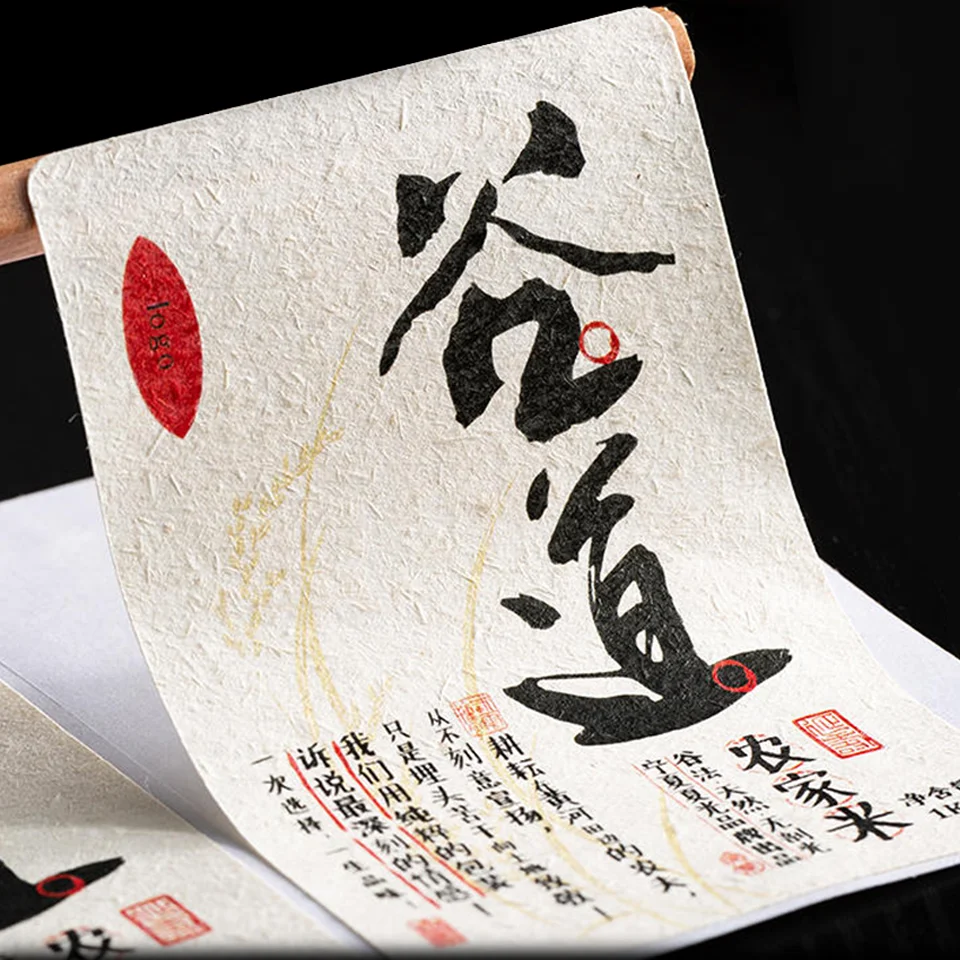 谷道
logo
农家米
净含
谷法天然 天制米
宁夏夏水品牌出品
耕耘黄河田的农夫，
从不刻意宣扬，
只是埋头苦干向土地致敬
我们用纯粹的包装
诉说最深刻的情感
一次选择，一生品味
农